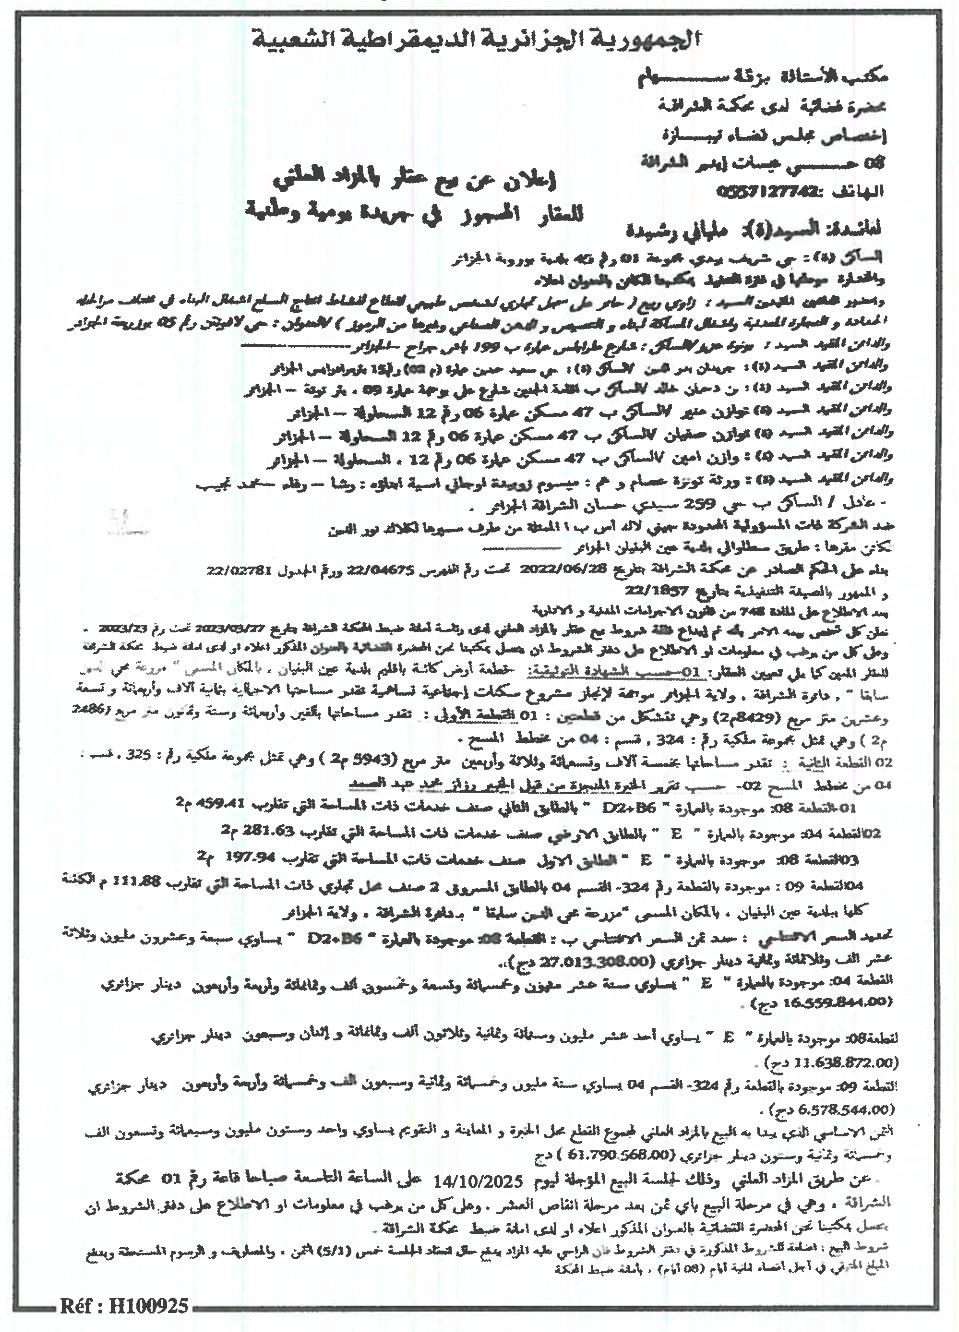 الجمهورية الجزائرية الديمقراطية الشعبية
مكتب الأستاذة بزقة ســـــهام
محضرة قضائية لدى محكمة الشراقة
إختصاص مجلس قضاء تيبــازة
08 حـــسـي عيسات إيدير الشراقة
الهاتف :0557127742
إعلان عن بيع عقار بالمزاد العلني
للعقار المحجوز في جريدة يومية وطنية
لفائدة: السيد(ة): مليلني رشيدة
الساكن (ة) : حي شريف يدي مجموعة 01 رقم 45 بلدية بوروبة الجزائر
والمختارة موطنها في غاية التنفيذ بمكتبنا الكائن بالعنوان اعلاه
وبحضور الدائنين المقيدين السيد : زاوي ربيع
العنوان : حي لاكوتش رقم 05 بوزريعة الجزائر
والدائن المقيد السيد : عزيز الساكن : شارع طرابلس عمارة ب 199 باش جراح -الجزائر
والدائن المقيد السيد (ة) : الساكن (ة) : حي سعيد حمدين عمارة (م 02) رقم15 بئرمرادرايس الجزائر
والدائن المقيد السيد (ة) : بن دحمان خالد الساكن ب شارع علي بوجمعة عمارة 09 ، بئر توتة – الجزائر
والدائن المقيد السيد (ة) توازن منير الساكن ب 47 مسكن عمارة 06 رقم 12 السحاولة – الجزائر
والدائن المقيد السيد (ة) توازن سفيان الساكن ب 47 مسكن عمارة 06 رقم 12 السحاولة – الجزائر
والدائن المقيد السيد (ة) : وازن امين الساكن ب 47 مسكن عمارة 06 رقم 12 ، السحاولة – الجزائر
والدائن المقيد السيد (ة) : ورثة تونزة عصام و هم : ميسوم زوبيدة اوجاني اسية ابناؤه : رشا – رفاء – محمد نجيب
- عادل / الساكن ب حي 259 سيدي حسان الشراقة الجزائر .
ضد الشركة ذات المسؤولية المحدودة جيني لاك أس ب ا الممثلة من طرف مسيرها نور الدين
الكائن مقرها : طريق سطاوالي بلدية عين البنيان الجزائر
بناء على الحكم الصادر عن محكمة الشراقة بتاريخ 2022/06/28 تحت رقم الفهرس 22/04675 ورقم الجدول 22/02781
و الممهور بالصيغة التنفيذية بتاريخ 22/1857
بعد الاطلاع على المادة 748 من قانون الاجراءات المدنية و الادارية
نعلن لكل شخص يهمه الامر بأنه تم إيداع قائمة شروط بيع عقار بالمزاد العلني لدى رئاسة أمانة ضبط المحكمة الشراقة بتاريخ 2023/03/27 تحت رقم 2023/23 .
وعلى كل من يرغب في معلومات او الاطلاع على دفتر الشروط ان يتصل بمكتبنا نحن المحضرة القضائية بالعنوان المذكور اعلاه او لدى امانة ضبط محكمة الشراقة
للعقار المبين كما يلي تعيين العقار: 01-حسب الشهادة التوثيقية: قطعة أرض كائنة باقليم بلدية عين البنيان ، بالمكان المسمى " مزرعة محي الدين
سابقا " ، دائرة الشراقة ، ولاية الجزائر موجهة لإنجاز مشروع سكنات إجتماعية تساهمية تقدر مساحتها الاجمالية بثمانية آلاف وأربعمائة و تسعة
وعشرين متر مربع (8429م2) وهي تتشكل من قطعتين : 01 القطعة الأولى : تقدر مساحاتها بألفين وأربعمائة وستة وثمانون متر مربع (2486
م2 ) وهي تمثل مجموعة ملكية رقم : 324 ، قسم : 04 من مخطط المسح .
02 القطعة الثانية : تقدر مساحاتها بخمسة آلاف وتسعمائة وثلاثة وأربعين متر مربع (5943 م2 ) وهي تمثل مجموعة ملكية رقم : 325 ، قسم :
04 من مخطط المسح 02- حسب تقرير الخبرة المنجزة من قبل الخبير رزاز محمد عبد الصمد
01-القطعة 08: موجودة بالعمارة " D2+B6 " بالطابق الثاني صنف خدمات ذات المساحة التي تقارب 459.41 م2
02القطعة 04: موجودة بالعمارة " E " بالطابق الارضي صنف خدمات ذات المساحة التي تقارب 281.63 م2
03القطعة 08: موجودة بالعمارة " E " الطابق الاول صنف خدمات ذات المساحة التي تقارب 197.94 م2
04القطعة 09 : موجودة بالقطعة رقم 324- القسم 04 بالطابق المسروق 2 صنف محل تجاري ذات المساحة التي تقارب 111.88 م الكائنة
كلها ببلدية عين البنيان ، بالمكان المسمى "مزرعة محي الدين سابقا " بدائرة الشراقة ، ولاية الجزائر
تحديد السعر الافتتاحي : حدد ثمن السعر الافتتاحي ب : القطعة 08: موجودة بالعمارة " D2+B6 " يساوي سبعة وعشرون مليون وثلاثة
عشر الف وثلاثمائة وثمانية دينار جزائري (27.013.308.00 دج)،.
القطعة 04: موجودة بالعمارة " E " يساوي ستة عشر مليون وخمسمائة وتسعة وخمسون ألف وثمانمائة وأربعة وأربعون دينار جزائري
(16.559.844.00 دج) .
لقطعة08: موجودة بالعمارة " E " يساوي أحد عشر مليون وستمائة وثمانية وثلاثون ألف وثمانمائة و إثنان وسبعون دينار جزائري
(11.638.872.00 دج) .
القطعة 09: موجودة بالقطعة رقم 324- القسم 04 يساوي ستة مليون وخمسمائة وثمانية وسبعون الف وخمسمائة وأربعة وأربعون دينار جزائري
(6.578.544.00 دج) .
الثمن الاساسي الذي يبدا به البيع بالمزاد العلني لمجموع القطع محل الخبرة و المعاينة و التقويم يساوي واحد وستون مليون وسبعمائة وتسعون الف
وخمسمائة وثمانية وستون دينار جزائري (61.790.568.00 ) دج
عن طريق المزاد العلني وذلك لجلسة البيع المؤجلة ليوم 14/10/2025 على الساعة التاسعة صباحا قاعة رقم 01 محكمة
الشراقة ، وهي في مرحلة البيع باي ثمن بعد مرحلة انقاص العشر ، وعلى كل من يرغب في معلومات او الاطلاع على دفتر الشروط ان
يتصل بمكتبنا نحن المحضرة القضائية بالعنوان المذكور اعلاه او لدى امانة ضبط محكمة الشراقة .
شروط البيع : اضافة للشروط المذكورة في دفتر الشروط فان الراسي عليه المزاد يدفع حال انعقاد الجلسة خمس (5/1) الثمن ، والمصاريف و الرسوم المستحقة ويدفع
المبلغ المتبقي في أجل أقصاه ثمانية أيام (08 أيام) ، بأمانة ضبط المحكمة
Réf : H100925